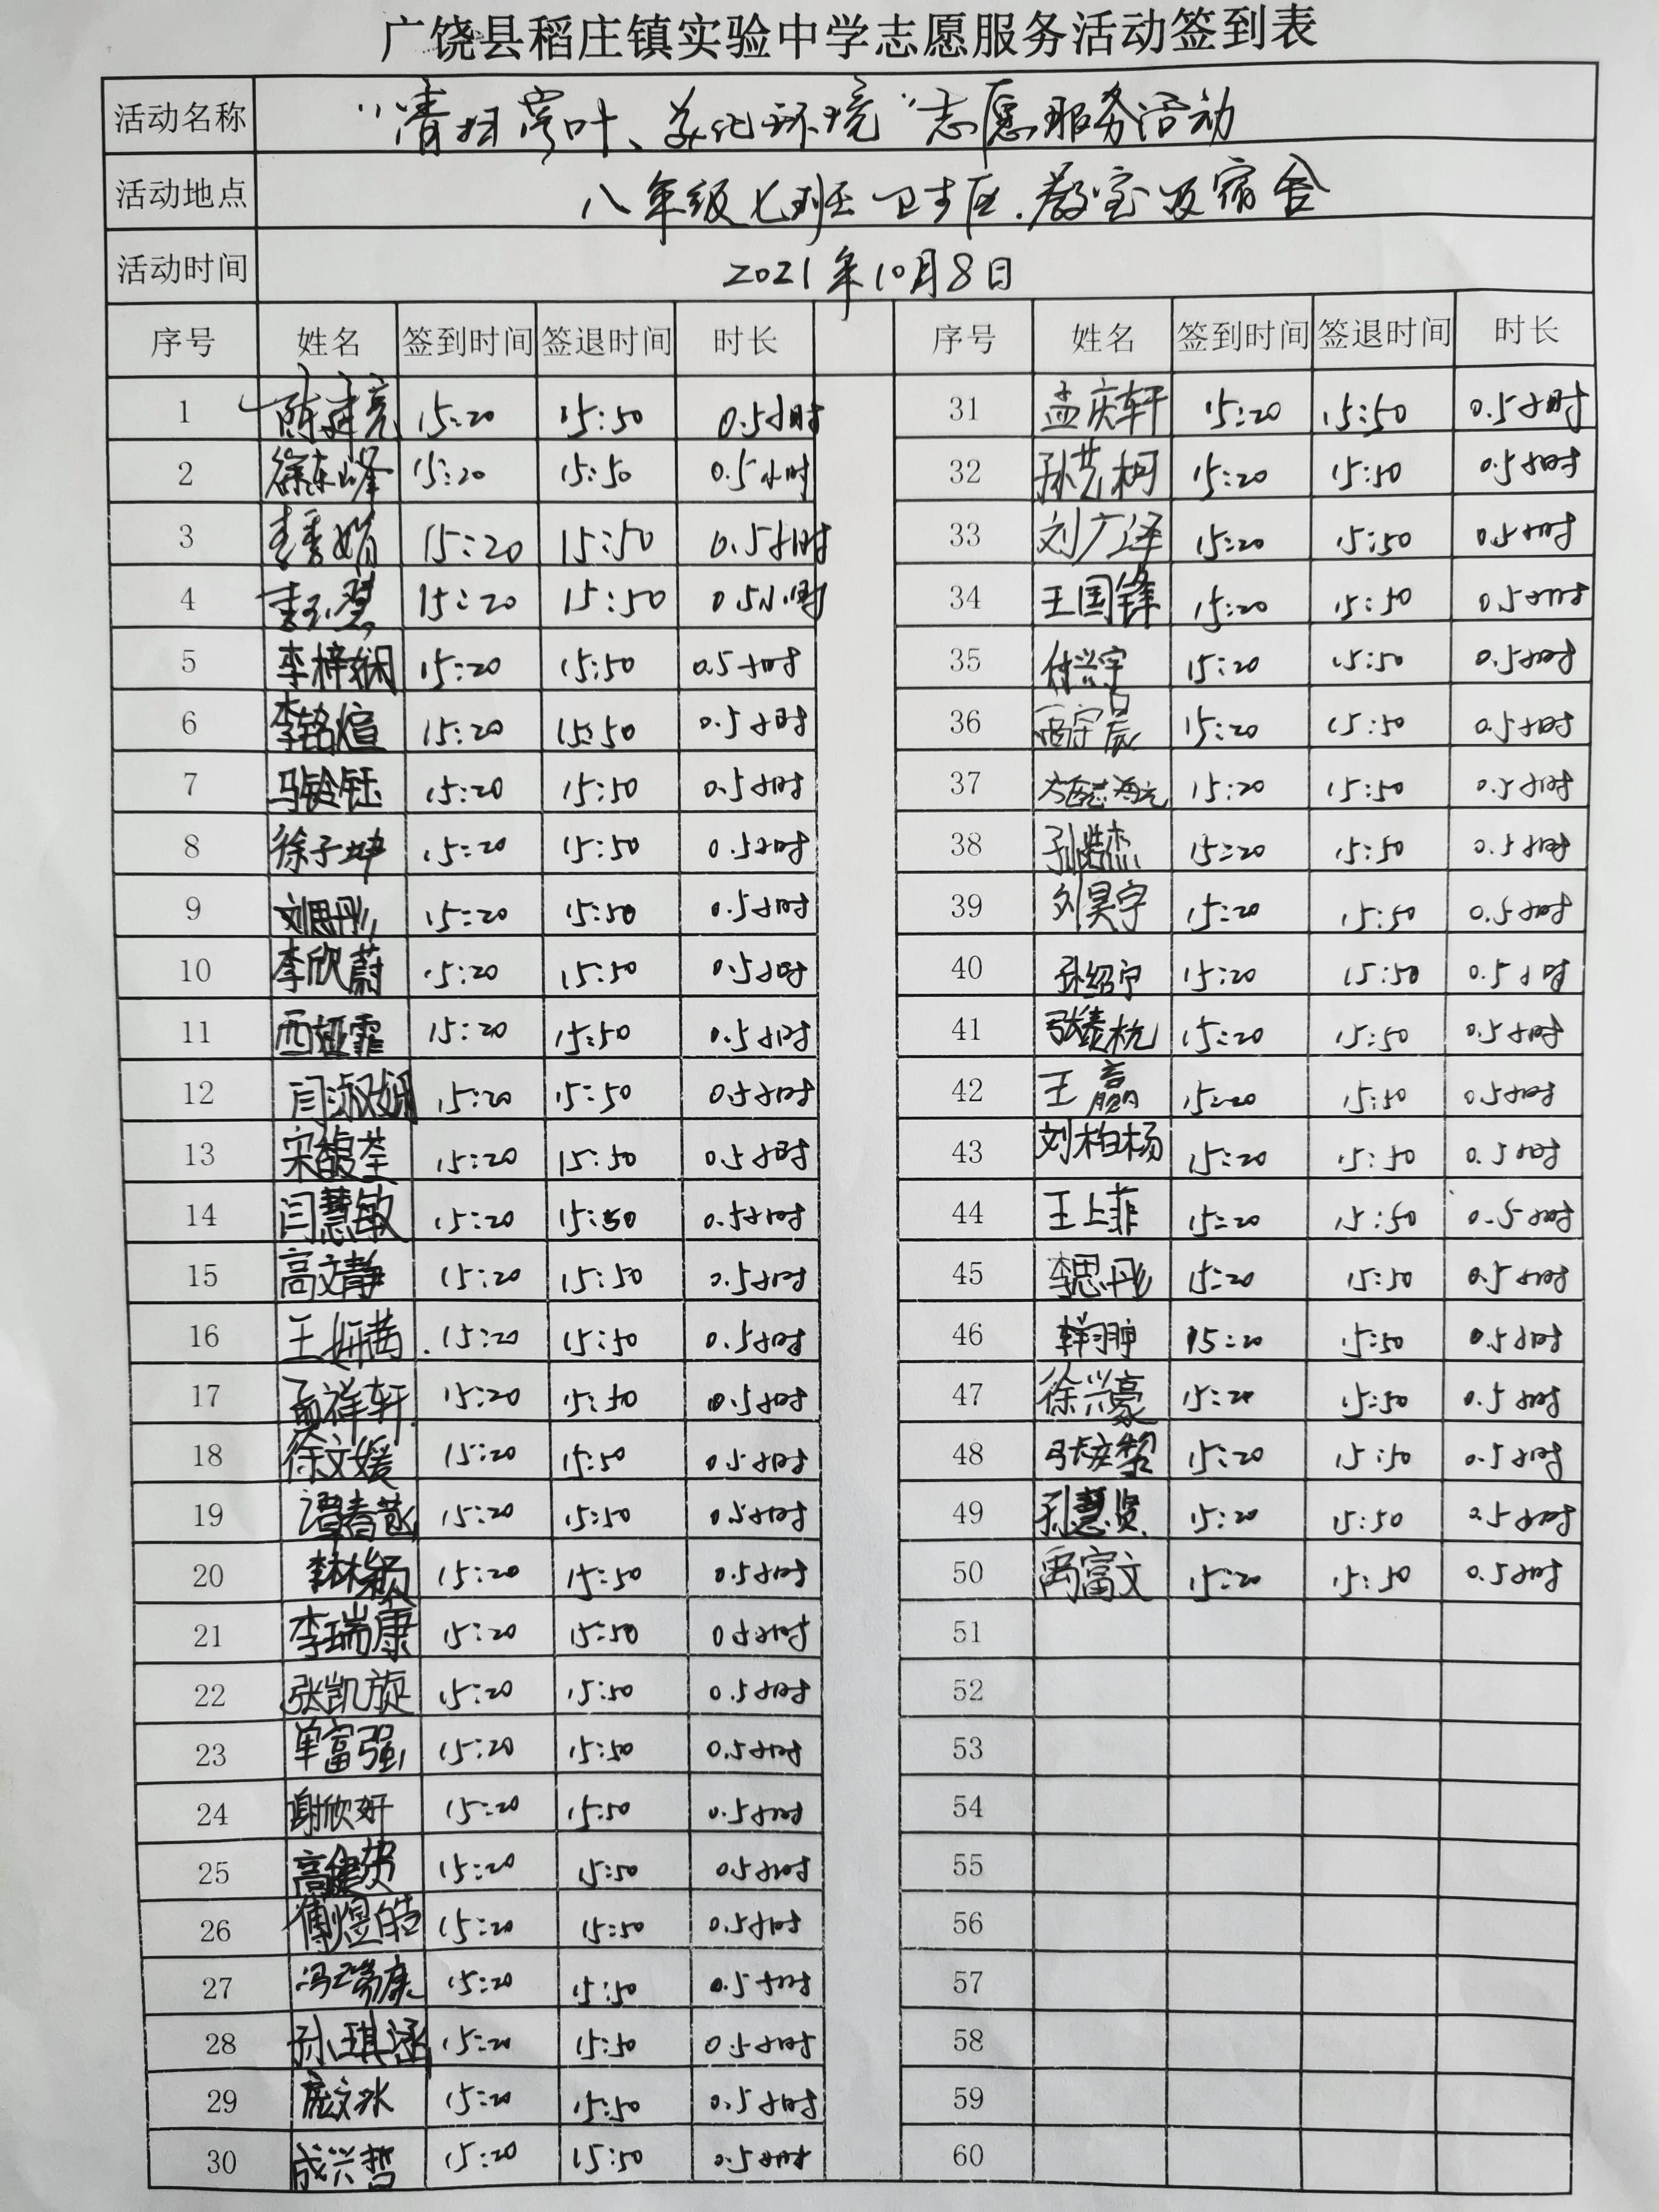 广饶县稻庄镇实验中学志愿服务活动签到表
活动名称 “清扫落叶、美化环境”志愿服务活动
活动地点 八年级七班卫生区.教室及宿舍
活动时间 2021年10月8日
序号 姓名 签到时间 签退时间 时长 序号 姓名 签到时间 签退时间 时长
1 陈建亮 15:20 15:50 0.5小时 31 孟庆轩 15:20 15:50 0.5小时
2 徐东峰 15:20 15:50 0.5小时 32 孙艺柯 15:20 15:50 0.5小时
3 李秀娟 15:20 15:50 0.5小时 33 刘广泽 15:20 15:50 0.5小时
4 15:20 15:50 0.5小时 34 王国锋 15:20 15:50 0.5小时
5 李梓娴 15:20 15:50 0.5小时 35 付兴宇 15:20 15:50 0.5小时
6 李铭煊 15:20 15:50 0.5小时 36 15:20 15:50 0.5小时
7 马铃钰 15:20 15:50 0.5小时 37 15:20 15:50 0.5小时
8 徐子坤 15:20 15:50 0.5小时 38 孙浩杰 15:20 15:50 0.5小时
9 刘思彤 15:20 15:50 0.5小时 39 刘昊宇 15:20 15:50 0.5小时
10 李欣蔚 15:20 15:50 0.5小时 40 孙绍宁 15:20 15:50 0.5小时
11 西娅霏 15:20 15:50 0.5小时 41 张泰杭 15:20 15:50 0.5小时
12 闫淑娴 15:20 15:50 0.5小时 42 王赢 15:20 15:50 0.5小时
13 宋馥荃 15:20 15:50 0.5小时 43 刘柏杨 15:20 15:50 0.5小时
14 闫慧敏 15:20 15:50 0.5小时 44 王上菲 15:20 15:50 0.5小时
15 高文静 15:20 15:50 0.5小时 45 李思彤 15:20 15:50 0.5小时
16 王妍茜 15:20 15:50 0.5小时 46 15:20 15:50 0.5小时
17 孟祥轩 15:20 15:50 0.5小时 47 徐兴豪 15:20 15:50 0.5小时
18 徐文媛 15:20 15:50 0.5小时 48 15:20 15:50 0.5小时
19 15:20 15:50 0.5小时 49 孙慧贤 15:20 15:50 0.5小时
20 李林颖 15:20 15:50 0.5小时 50 禹富文 15:20 15:50 0.5小时
21 李瑞康 15:20 15:50 0.5小时 51
22 张凯旋 15:20 15:50 0.5小时 52
23 单富强 15:20 15:50 0.5小时 53
24 谢欣妍 15:20 15:50 0.5小时 54
25 15:20 15:50 0.5小时 55
26 傅煜皓 15:20 15:50 0.5小时 56
27 冯瑞康 15:20 15:50 0.5小时 57
28 孙琪涵 15:20 15:50 0.5小时 58
29 庞文冰 15:20 15:50 0.5小时 59
30 成兴哲 15:20 15:50 0.5小时 60